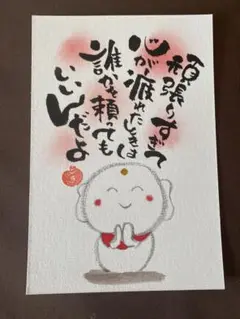 頑張りすぎて
心が疲れたときは
誰かを頼っても
いいんだよ